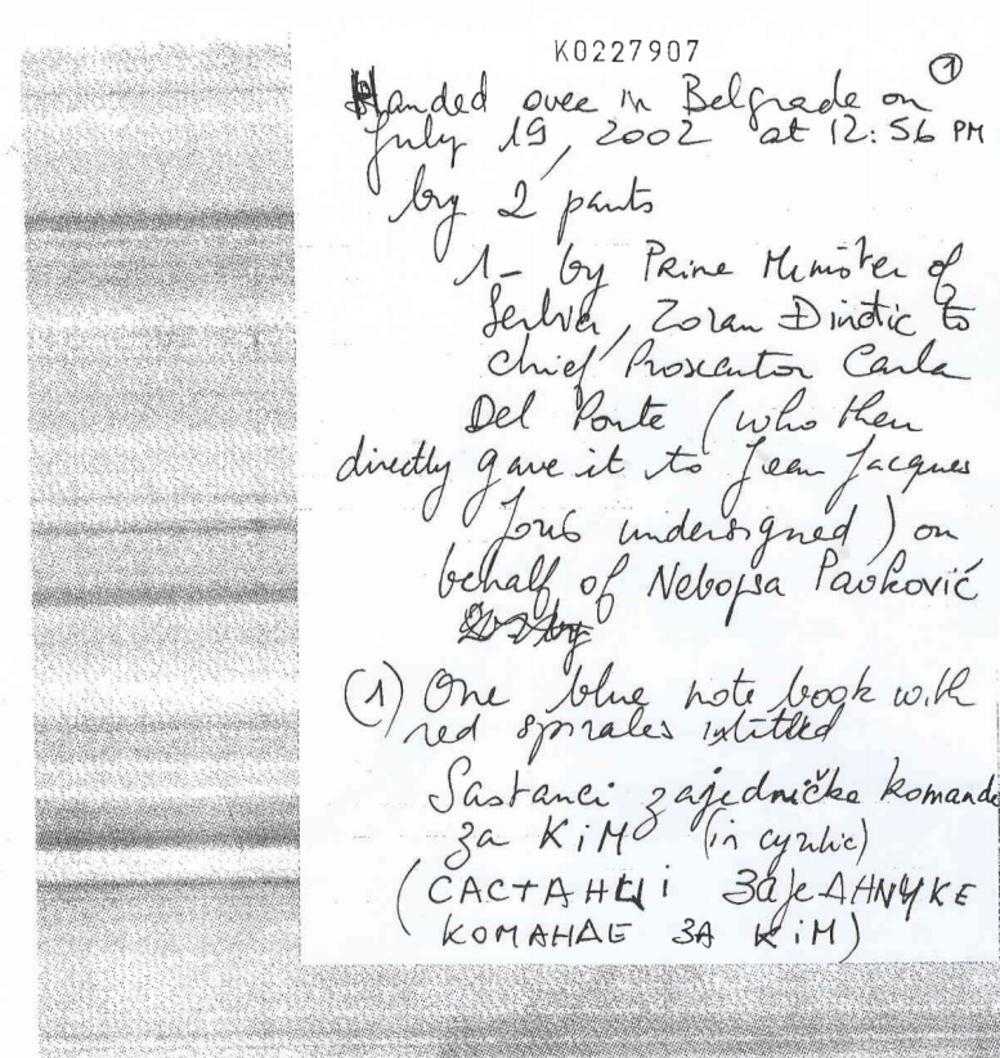 K0227907
①
Handed over in Belgrade on
July 19, 2002 at 12:56 PM
by 2 parts
1- by Prime Minister of
Serbia, Zoran Dindic to
chief Prosecutor Carla
Del Ponte (who then
directly gave it to Jean Jacques
Joris undersigned) on
behalf of Nebojsa Pavković
(1) One blue note book with
red spirales intitled
Sastanci zajedničke komande
za KiM (in cyrilic)
(САСТАНЦi ЗАјЕДНИЧКЕ
КОМАНДЕ ЗА KiM)